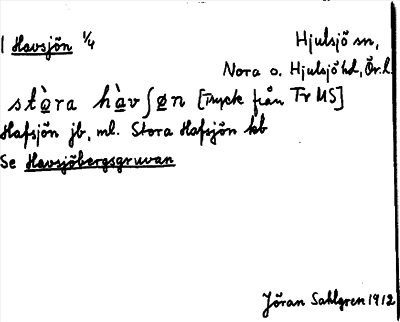 1 Havsjön 1/4 Hjulsjö sn,
Nora o. Hjulsjö hd, Ör. l.
stὰra hὰvʃøn [Tryck från Tr MS]
Hafsjön jb, ml. Stora Hafsjön kb
Se Havsjöbergsgruvan
Jöran Sahlgren 1912